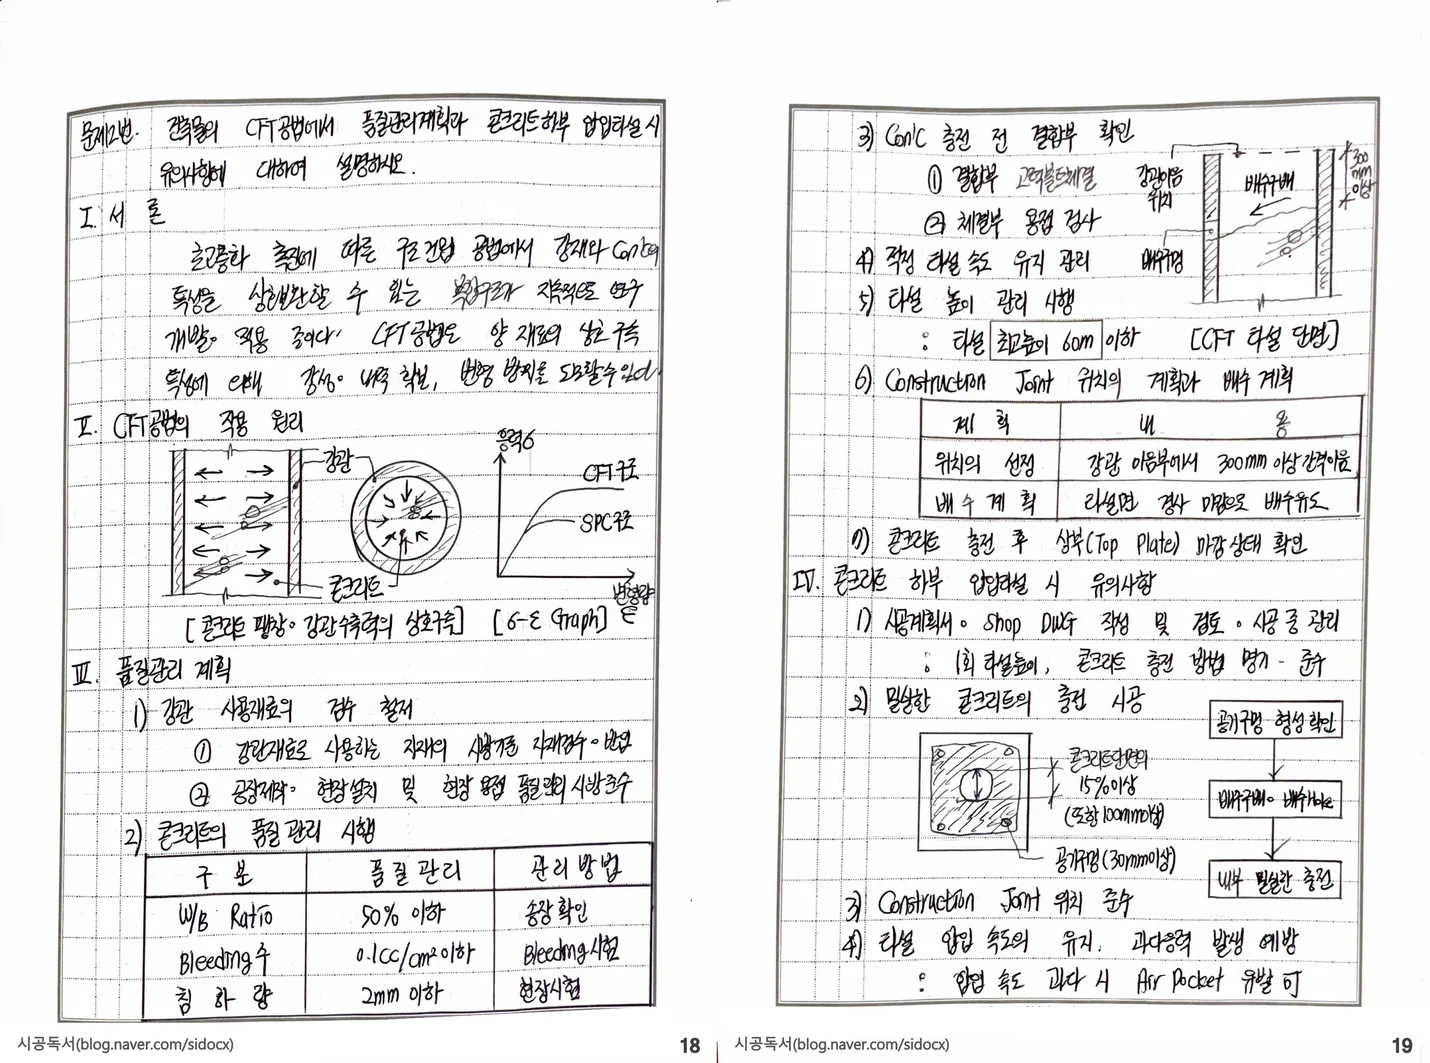 문제2번. 건축물의 CFT공법에서 품질관리계획과 콘크리트하부 압입타설 시
유의사항에 대하여 설명하시오.
I. 서 론
초고층화 추진에 따른 구조건립 공법에서 강재와 Con'c의
특성을 상호보완할 수 있는 복합구조가 지속적으로 연구
개발· 적용 중이다. CFT공법은 양 재료의 상호 구속
특성에 의해 강성· 내력 확보, 변형 방지를 도모할 수 있다.
II. CFT공법의 적용 원리
강관
콘크리트
응력σ
CFT구조
SPC구조
변형량
ε
[콘크리트 팽창· 강관수축력의 상호구속] [σ-ε Graph]
III. 품질관리 계획
1) 강관 사용재료의 검수 철저
① 강관재료로 사용하는 자재의 시방기준 자재검수·반입
② 공장제작· 현장설치 및 현장 용접 품질관리 시방준수
2) 콘크리트의 품질관리 시행
구 분 품질관리 관리방법
W/B Ratio 50% 이하 송장확인
Bleeding수 0.1cc/cm² 이하 Bleeding시험
침 하 량 2mm 이하 현장시험
시공독서(blog.naver.com/sidocx) 18
3) Con'c 충전 전 결합부 확인
① 결합부 고력볼트체결
② 체결부 용접 검사
4) 적정 타설 속도 유지 관리
5) 타설 높이 관리 시행
: 타설 최고높이 60m 이하
강관이음
위치
배수구배
배수구멍
300
mm
이상
[CFT 타설 단면]
6) Construction Joint 위치의 계획과 배수 계획
계 획 내 용
위치의 선정 강관 이음부에서 300mm 이상 간격이음
배 수 계 획 타설면 경사 마감으로 배수유도
7) 콘크리트 충전 후 상부(Top Plate) 마감상태 확인
IV. 콘크리트 하부 압입타설 시 유의사항
1) 시공계획서· Shop DWG 작성 및 검토· 시공 중 관리
: 1회 타설높이, 콘크리트 충전 방법 명기· 준수
2) 밀실한 콘크리트의 충전 시공
콘크리트단면의
15%이상
(또한 100mm이상)
공기구멍(30mm이상)
공기구멍 형성 확인
배수구배· 배수Hole
내부 밀실한 충전
3) Construction Joint 위치 준수
4) 타설 압입 속도의 유지. 과다응력 발생 예방
: 압입 속도 과다 시 Air Pocket 유발 可
시공독서(blog.naver.com/sidocx) 19